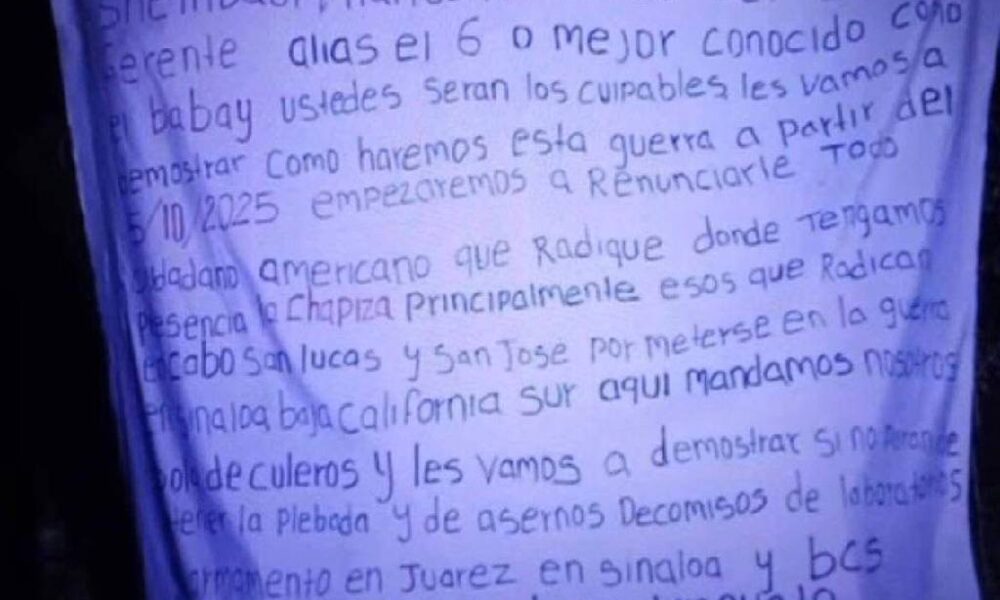 Gerente alias el 6 o mejor conocido como
el babay ustedes seran los culpables les vamos a
demostrar como haremos esta guerra a partir del
5/10/2025 empezaremos a Renunciarle Todo
americano que Radique donde Tengamos
Pesencia la Chapiza Principalmente esos que Radican
en cabo san lucas y san Jose por meterse en la guerra
en sinaloa baja california sur aqui mandamos nosotros
de culeros y les vamos a demostrar si no
la Plebada y de asernos Decomisos de laboratorios
armamento en Juarez en sinaloa y bcs